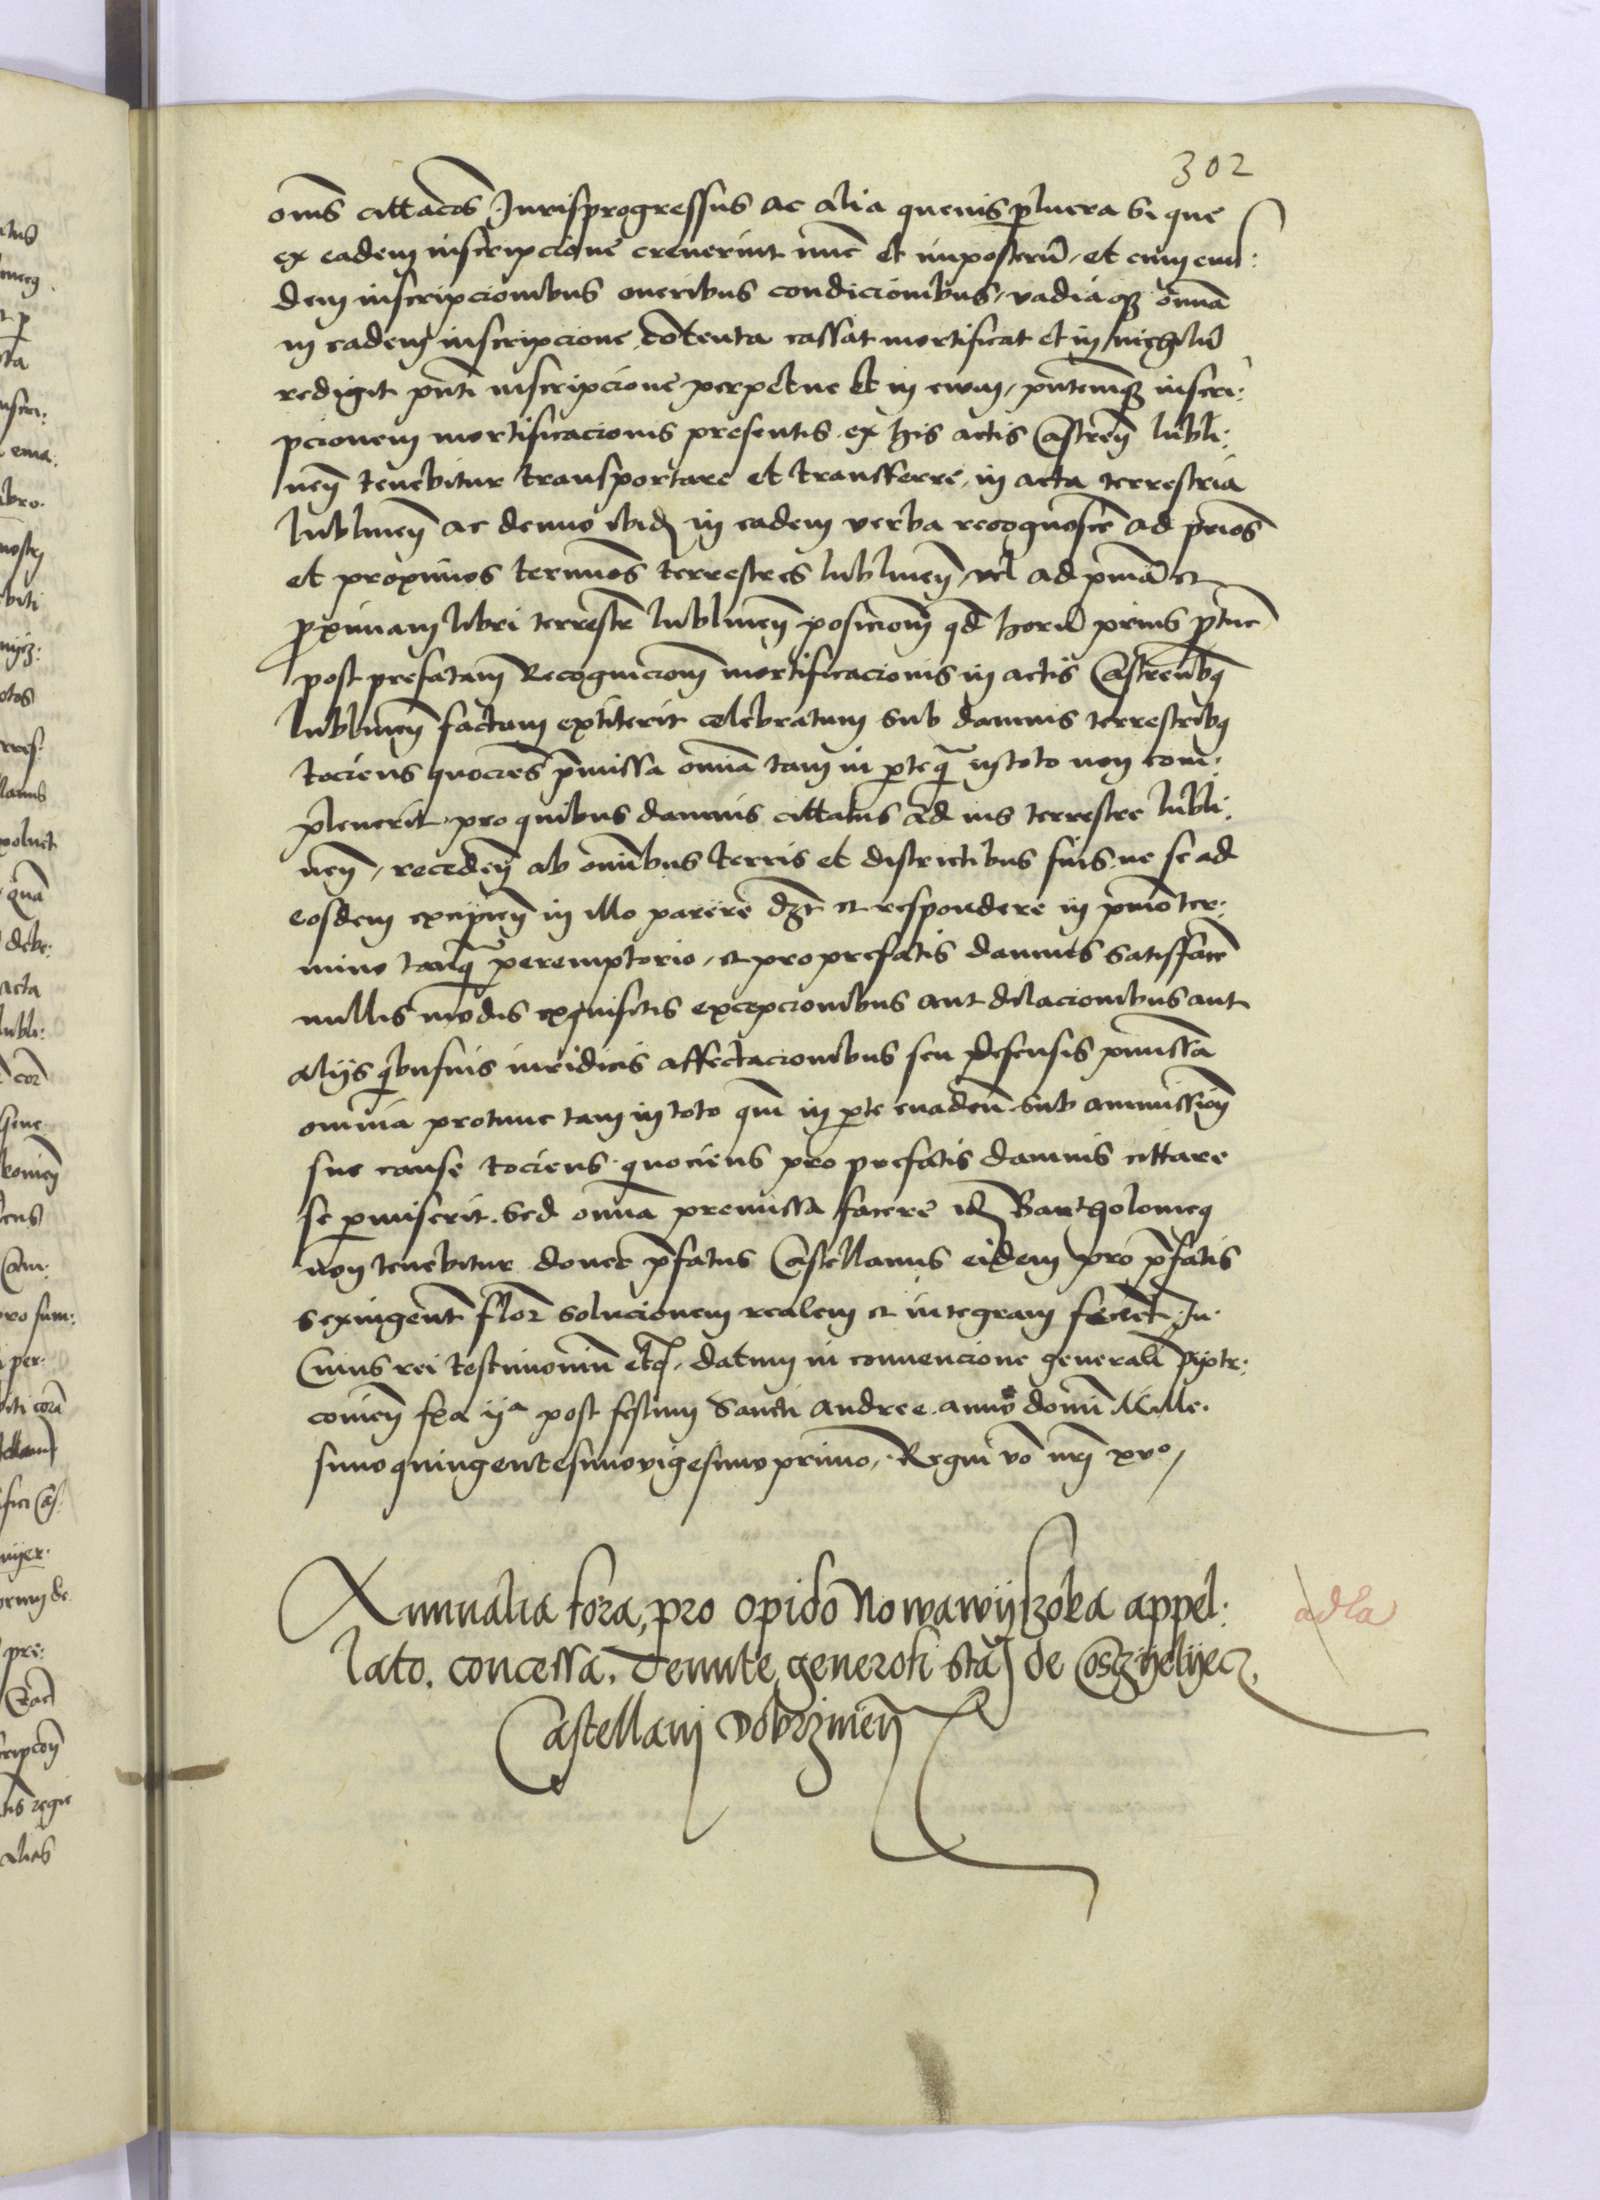 302
om̄s cittac̄o͞es Jurisprogressus ac alia quevis p lucra si que
ex eadem inscripcione creverint nunc et imposterū, et cum eius:
dem inscripcionibus oneribus condicionibus, vadiaq͞ꝫ omīa
in eadem inscripcione cōtenta cassat mortificat et in nichilū
redigit pn̄ti inscripcione perpetue et in evum, pn̄temq͞ꝫ inscri:
pcionem mortificacionis presentis ex his actis Castren̄ lubli:
nen̄ tenebitur transportare et transferre, in acta terrestria
lublinen̄ ac denuo ibid̄ in eadem verba recognoscē ad prīos
et proximos terminos terrestres lublinen̄, vel ad prīmā et
proximam libri terrestr̄ lublinen̄ posicion̄ qd̄ horū prius ꝓtunc
post prefatam Recognicion̄ mortificacionis in actis Castren̄bꝫ
lublinen̄ factam extiterit celebratum sub damnis terrestribꝫ
tociens quocies p̄missa omīa tam in parte q̄ in toto non com:
pleverit, pro quibus damnis cittatus ad ius terrestre lubli:
nen̄, receden̄ ab omībus terris et districtibus suis, ne se ad
eosdem excipien̄ in illo parere dꝫ et respondere in prīmo ter:
mino tanq̄ peremptorio, et pro prefatis damnis satisfacē
nullis modis exquisitis excepcionibus aut dilacionibus aut
alijs quibusvis iuridicis affectacionibus seu defensis pmissā
omnia protunc tam in toto qm̄ in parte evaden̄ sub ammission̄
sue cause tociens quociens pro prefatis damnis cittare
se pmiserit. Sed omīa premissa facere id̄ Bartholomeꝫ
non tenebitur donec p̄fatus Castellanus eidem pro p̄fatis
sexingent̄ flor̄ solucionem realem et integram fecerit. In
Cuius rei testimoniū etc̄. datum in convencione generali pyotr:
covien̄ fer̄a ijᵃ post festum Sancti andree anno domī Mille:
simo quingentesimovigesimo primo, Regni vō nr̄j xvº,
Annualia fora, pro opido Nowawijszoka appel:
lato, concessa. Devnte generosi Sta⟩ de Cosczyelyecz,
Castellani Dobrzinen̄
adla